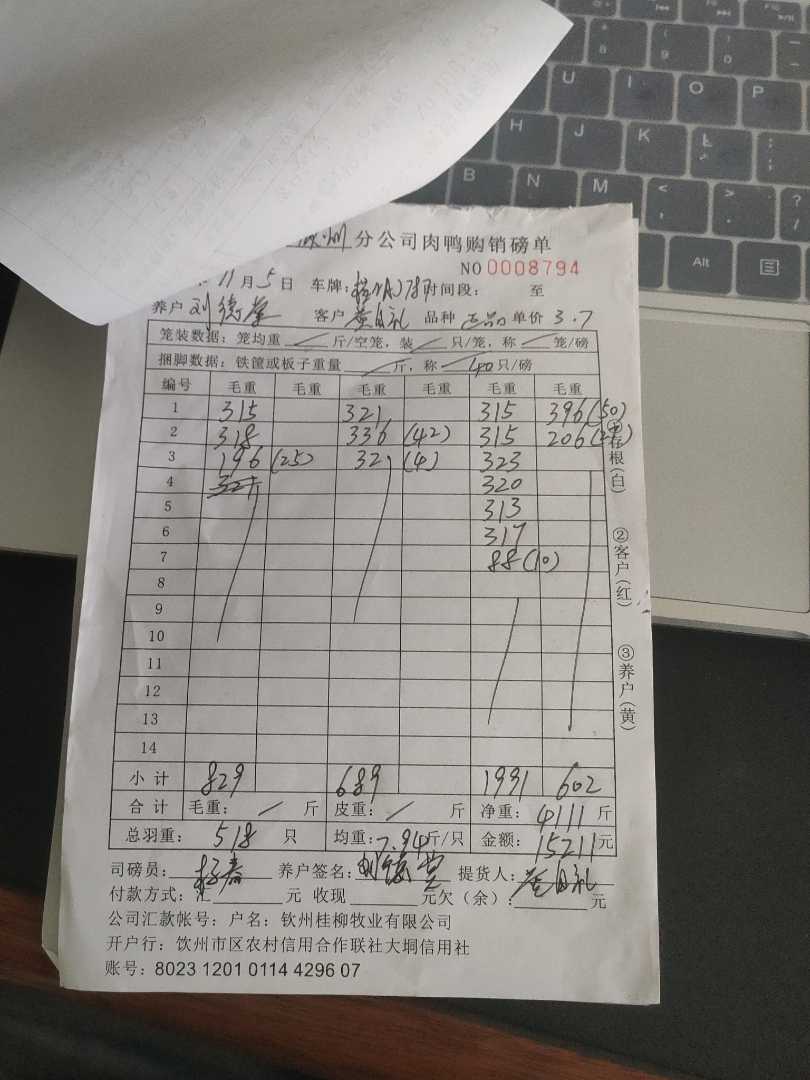 钦州分公司肉鸭购销磅单
NO 0008794
11月5日 车牌: 时间段: 至
养户 刘德 客户 自礼 品种 正品 单价 3.7
笼装数据:笼均重 斤/空笼,装 只/笼,称 笼/磅
捆脚数据:铁筐或板子重量 斤,称 40只/磅
编号 毛重 毛重 毛重 毛重 毛重 毛重
1 315 321 315 396(50)
2 318 336 (42) 315 206
3 196 (25) 32 (4) 323
4 321 320
5 313
6 317
7 88(10)
8
9
10
11
12
13
14
小计 829 689 1991 602
合计 毛重: 斤 皮重: 斤 净重: 4111 斤
总羽重: 518 只 均重: 7.94斤/只 金额: 15211元
司磅员: 养户签名: 刘德 提货人: 自礼
付款方式:汇 元 收现 元欠(余): 元
公司汇款帐号:户名:钦州桂柳牧业有限公司
开户行:饮州市区农村信用合作联社大垌信用社
账号:8023 1201 0114 4296 07
存根(白)
②客户(红)
③养户(黄)
Alt
U
I
O
P
H
J
K
L
B
N
M